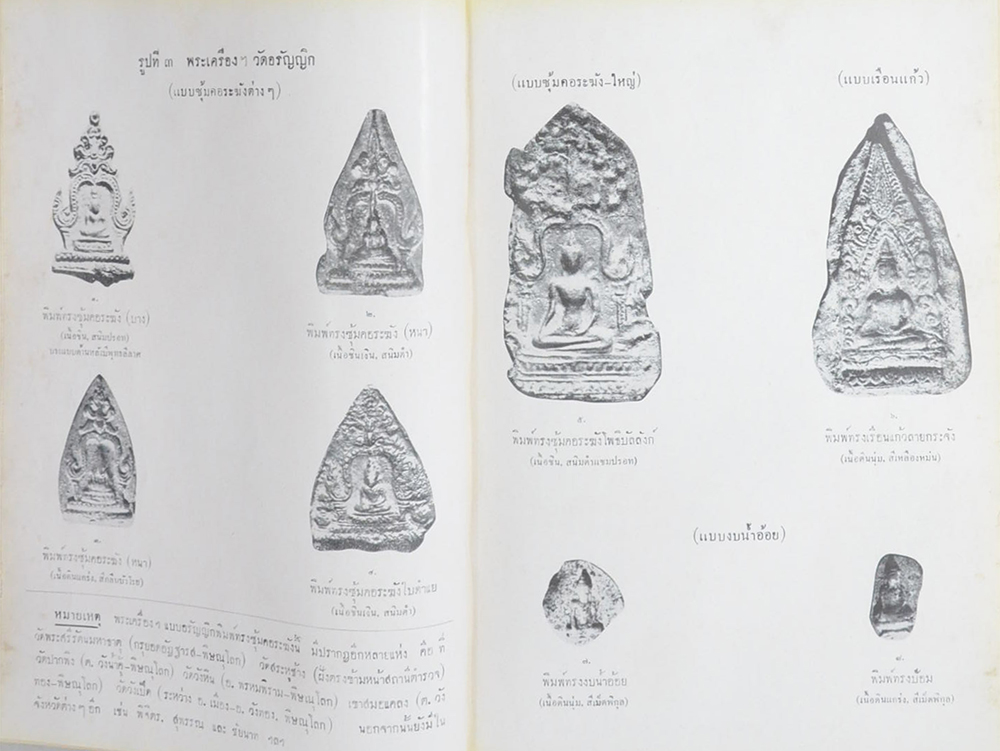 รูปที่ ๓ พระเครื่องฯ วัดอรัญญิก
(แบบซุ้มคอระฆังต่างๆ)
๑.
พิมพ์ทรงซุ้มคอระฆัง (บาง)
(เนื้อชิน, สนิมปรอท)
๒.
พิมพ์ทรงซุ้มคอระฆัง (หนา)
(เนื้อชินเงิน, สนิมดำ)
พิมพ์ทรงซุ้มคอระฆัง (หนา)
พิมพ์ทรงซุ้มคอระฆังใบตำแย
(เนื้อชินเงิน, สนิมดำ)
หมายเหตุ พระเครื่องฯ แบบอรัญญิกพิมพ์ทรงซุ้มคอระฆังนี้ มีปรากฏอีกหลายแห่ง คือ ที่
วัดพระศรีรัตนมหาธาตุ (กรุยอดอัฏฐารส-พิษณุโลก) วัดสระหูช้าง (ฝั่งตรงข้ามหน้าสถานีตำรวจ)
วัดปากพิง (ต. วังน้ำคู้-พิษณุโลก) วัดวังหิน (อ. พรหมพิราม-พิษณุโลก) เขาสมอแคลง (ต. วัง
ทอง-พิษณุโลก) วัดวังเป็ด (ระหว่าง อ. เมือง-อ. วังทอง, พิษณุโลก) นอกจากนั้นยังมีใน
จังหวัดต่างๆ อีก เช่น พิจิตร, สุพรรณ และ ชัยนาท ฯลฯ
(แบบซุ้มคอระฆัง-ใหญ่)
๕.
พิมพ์ทรงซุ้มคอระฆังโพธิบัลลังก์
(เนื้อชิน, สนิมดำแซมปรอท)
(แบบเรือนแก้ว)
๖.
พิมพ์ทรงเรือนแก้วลายกระจัง
(เนื้อดินนุ่ม, สีเหลืองหม่น)
(แบบงบน้ำอ้อย)
๗.
พิมพ์ทรงงบน้ำอ้อย
(เนื้อดินนุ่ม, สีเม็ดพิกุล)
๘.
พิมพ์ทรงป้อม
(เนื้อดินแกร่ง, สีเม็ดพิกุล)